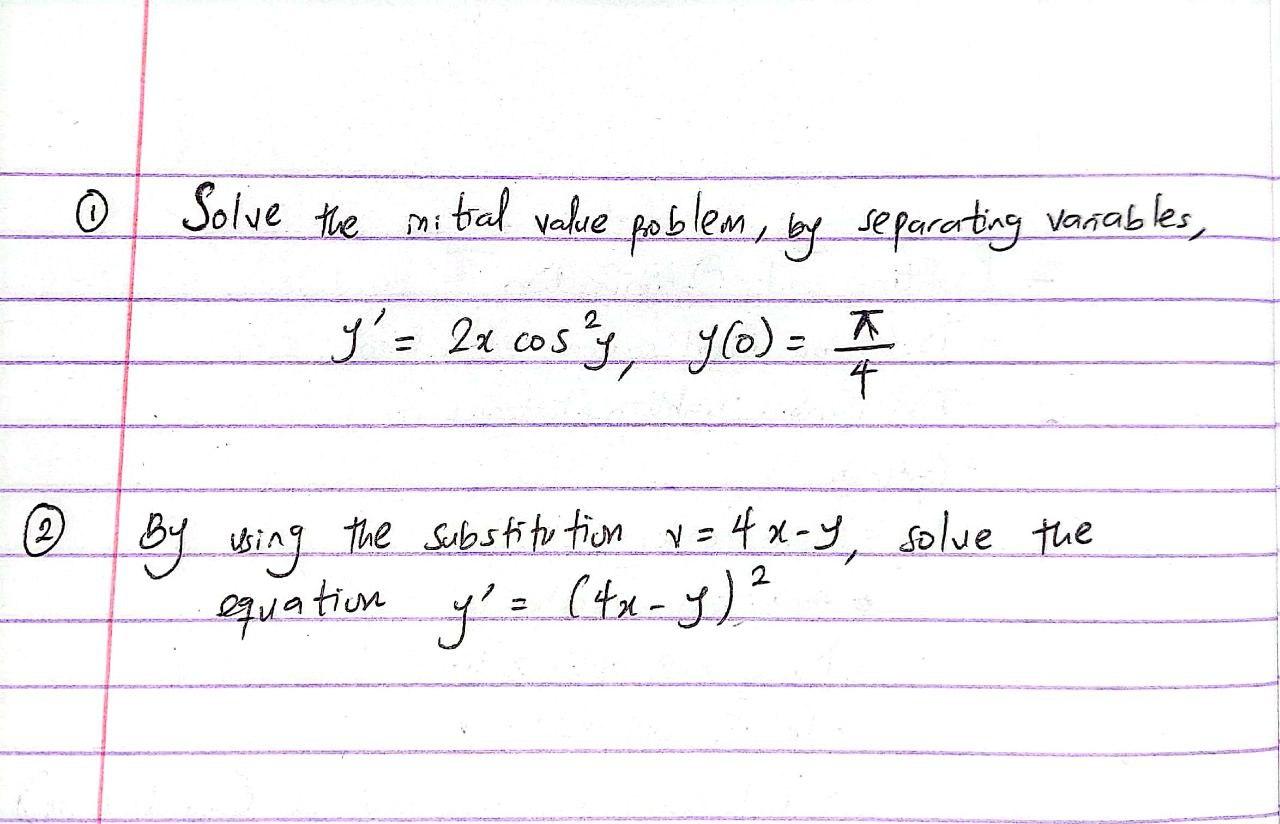 ① Solve the initial value problem, by separating variables,
y' = 2x cos²y, y(0) = π/4
② By using the substitution v = 4x-y, solve the
equation y' = (4x-y)²